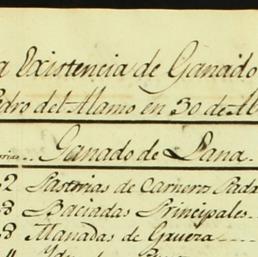 a Existencia de Ganado
Pedro del Alamo en 30 de
Ganado de Lana.
2 Pastorias de Carneros Padr
3 Baciadas Principales
3 Manadas de